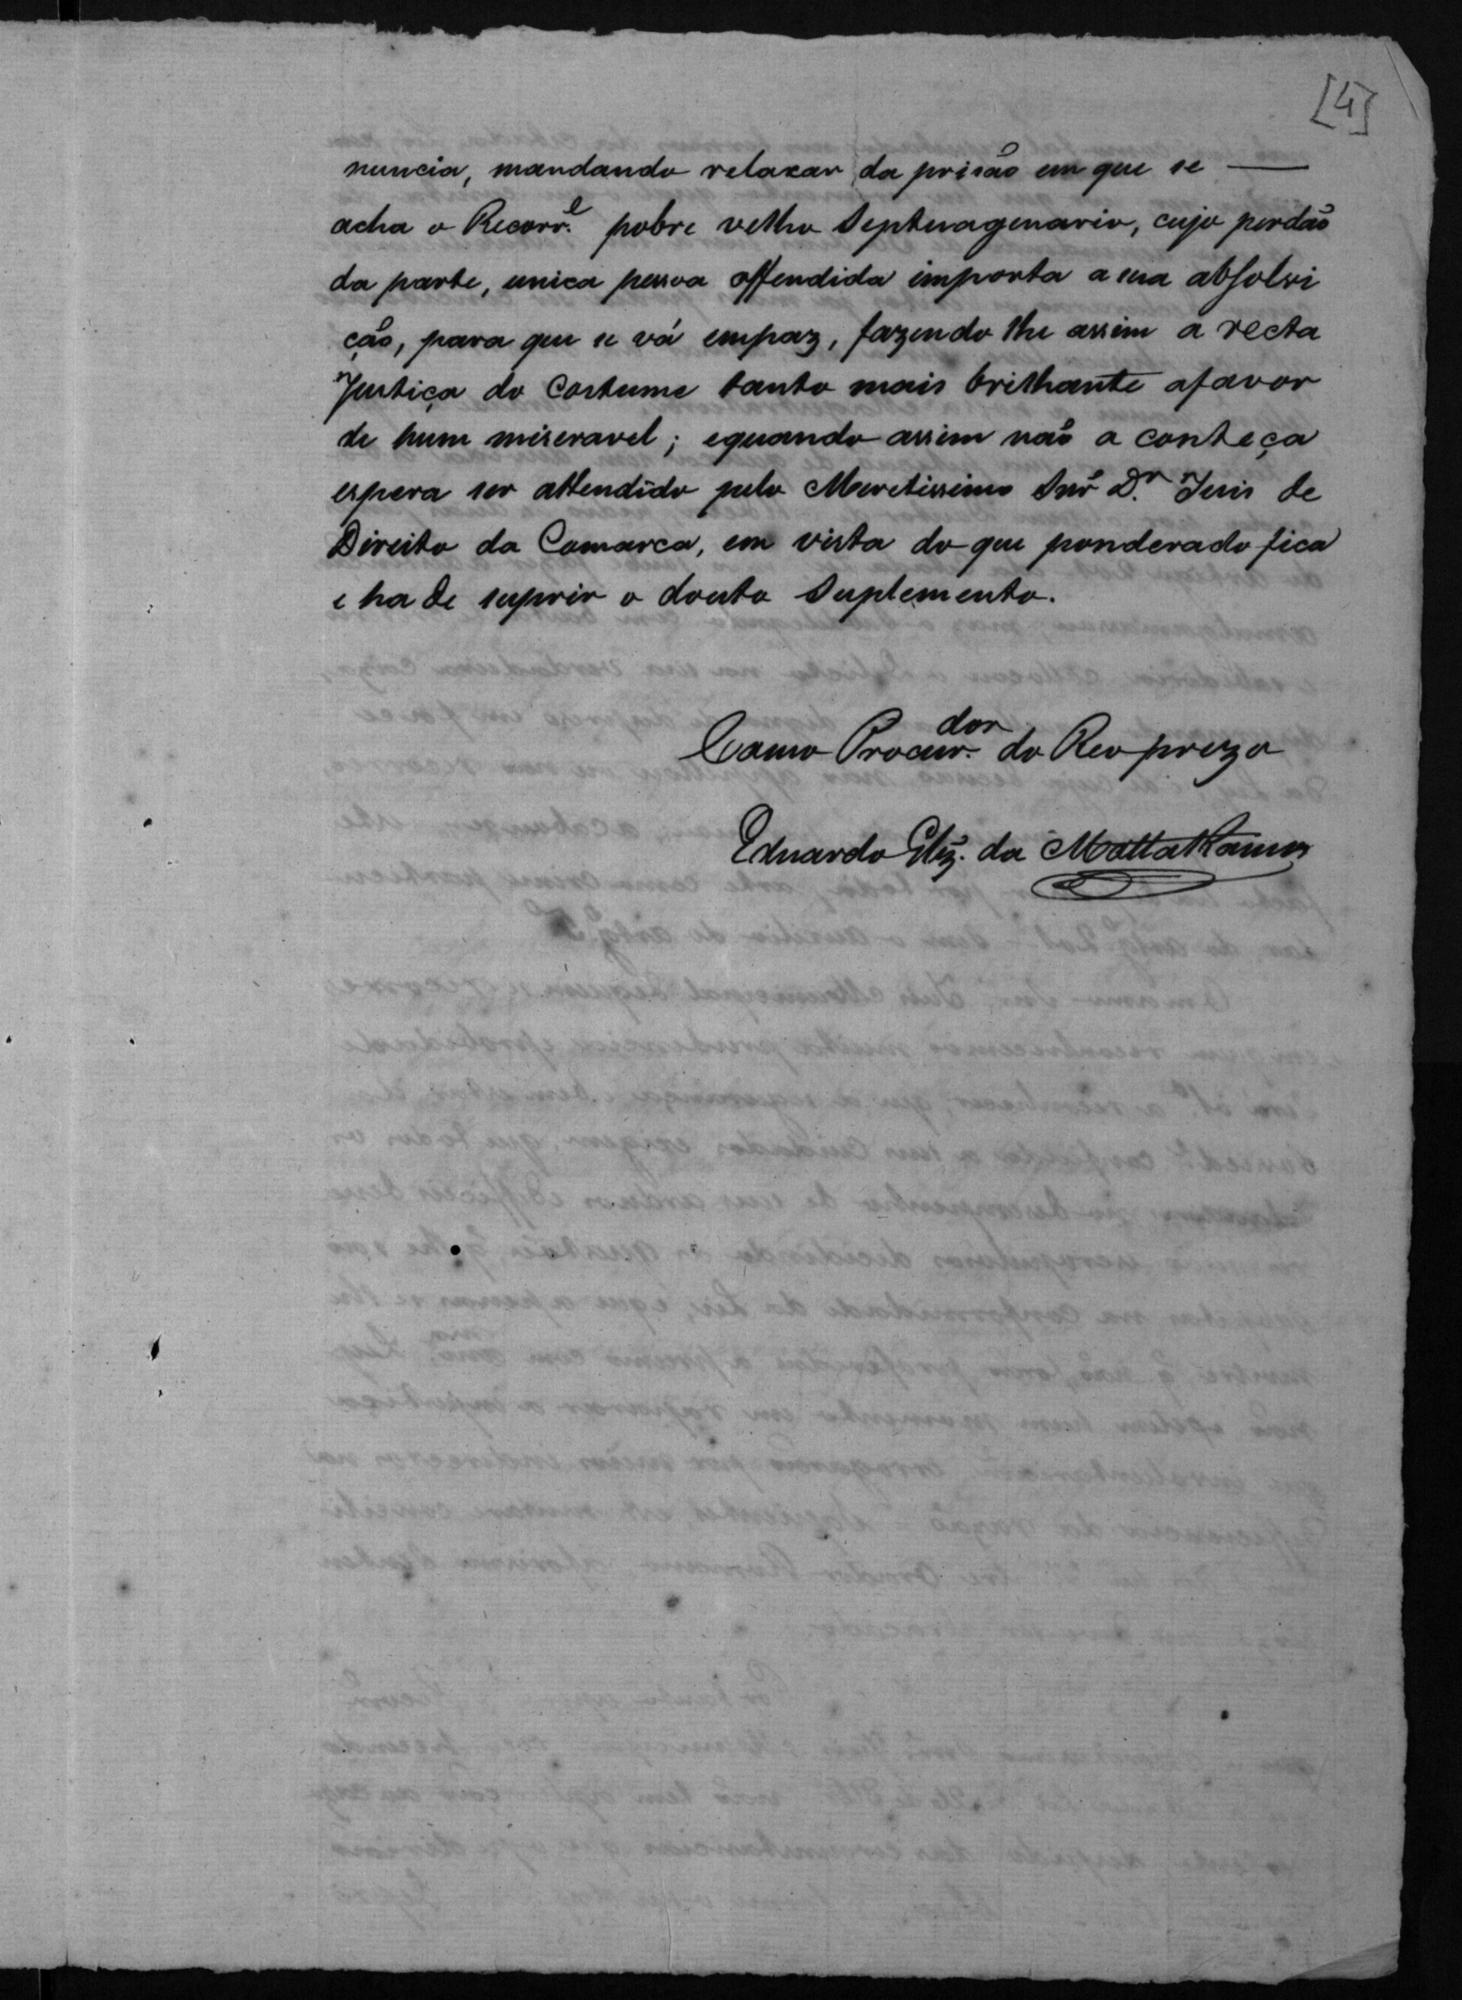 [4]
nuncia, mandando relaxar da prisão em que se —
acha o Recorr.e pobre velho Septuagenario, cujo perdão
da parte, unica pessoa offendida importa a sua absolvi
ção, para que se vá empaz, fazendo lhe assim a recta
Justiça do Costume tanto mais brilhante afavor
de hum miseravel; equando assim não a conteça
espera ser attendido pelo Meretissimo Snr̃ D.r Juis de
Direito da Comarca, em vista do que ponderado fica
e ha de suprir o douto Suplemento.
Como Procur.dor do Reo prezo
Eduardo Glz̃. da Motta Ramos